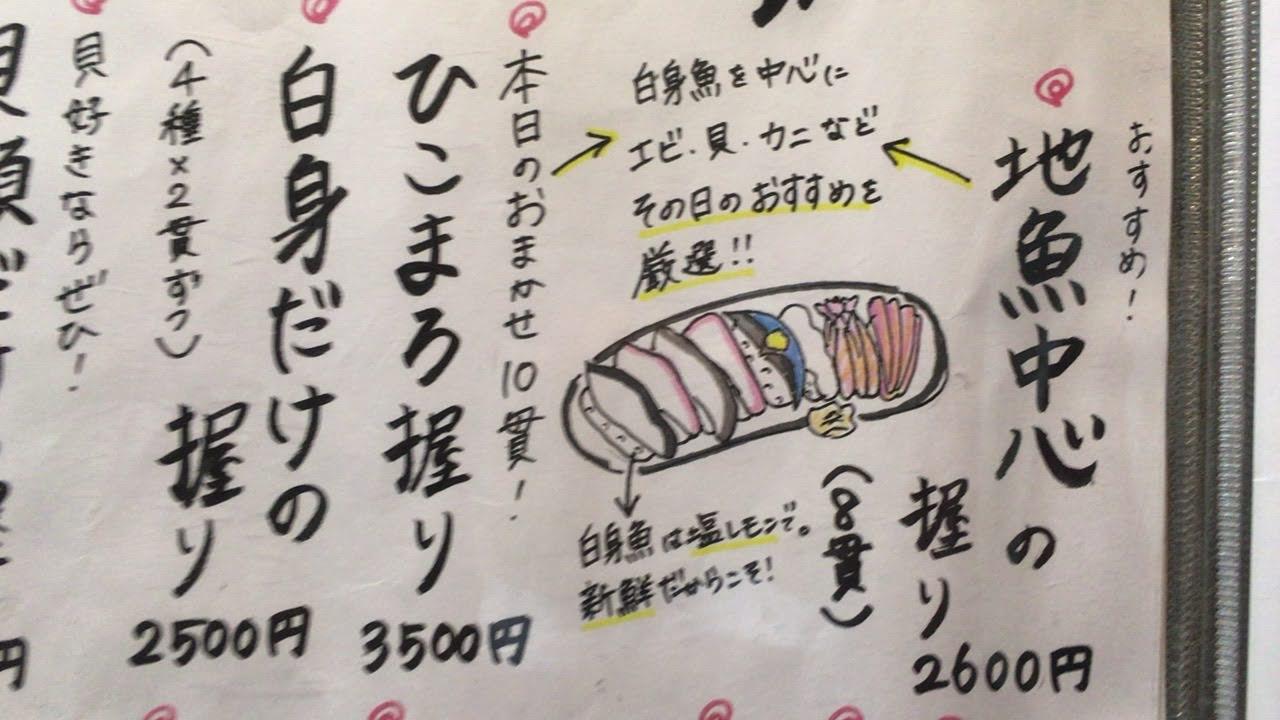 おすすめ!
地魚中心の
握り
(8貫)
2600円
白身魚を中心に
エビ・貝・カニなど
その日のおすすめを
厳選!!
白身魚は塩レモンで。
新鮮だからこそ!
本日のおまかせ10貫!
ひこまろ握り
3500円
白身だけの
握り
(4種×2貫ずつ)
2500円
貝好きならぜひ!
円